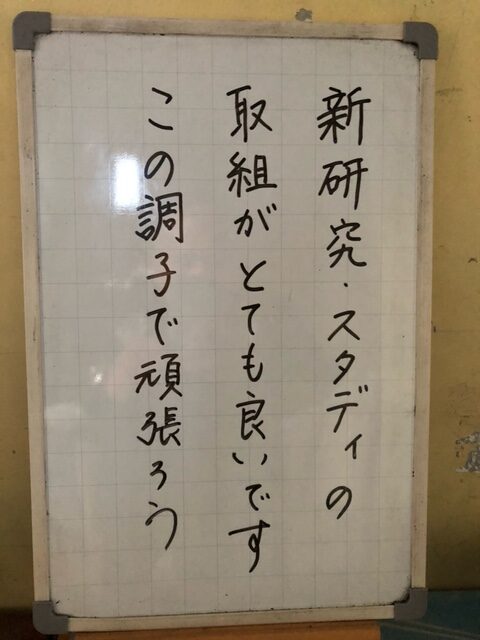 新研究・スタディの
取組がとても良いです
この調子で頑張ろう